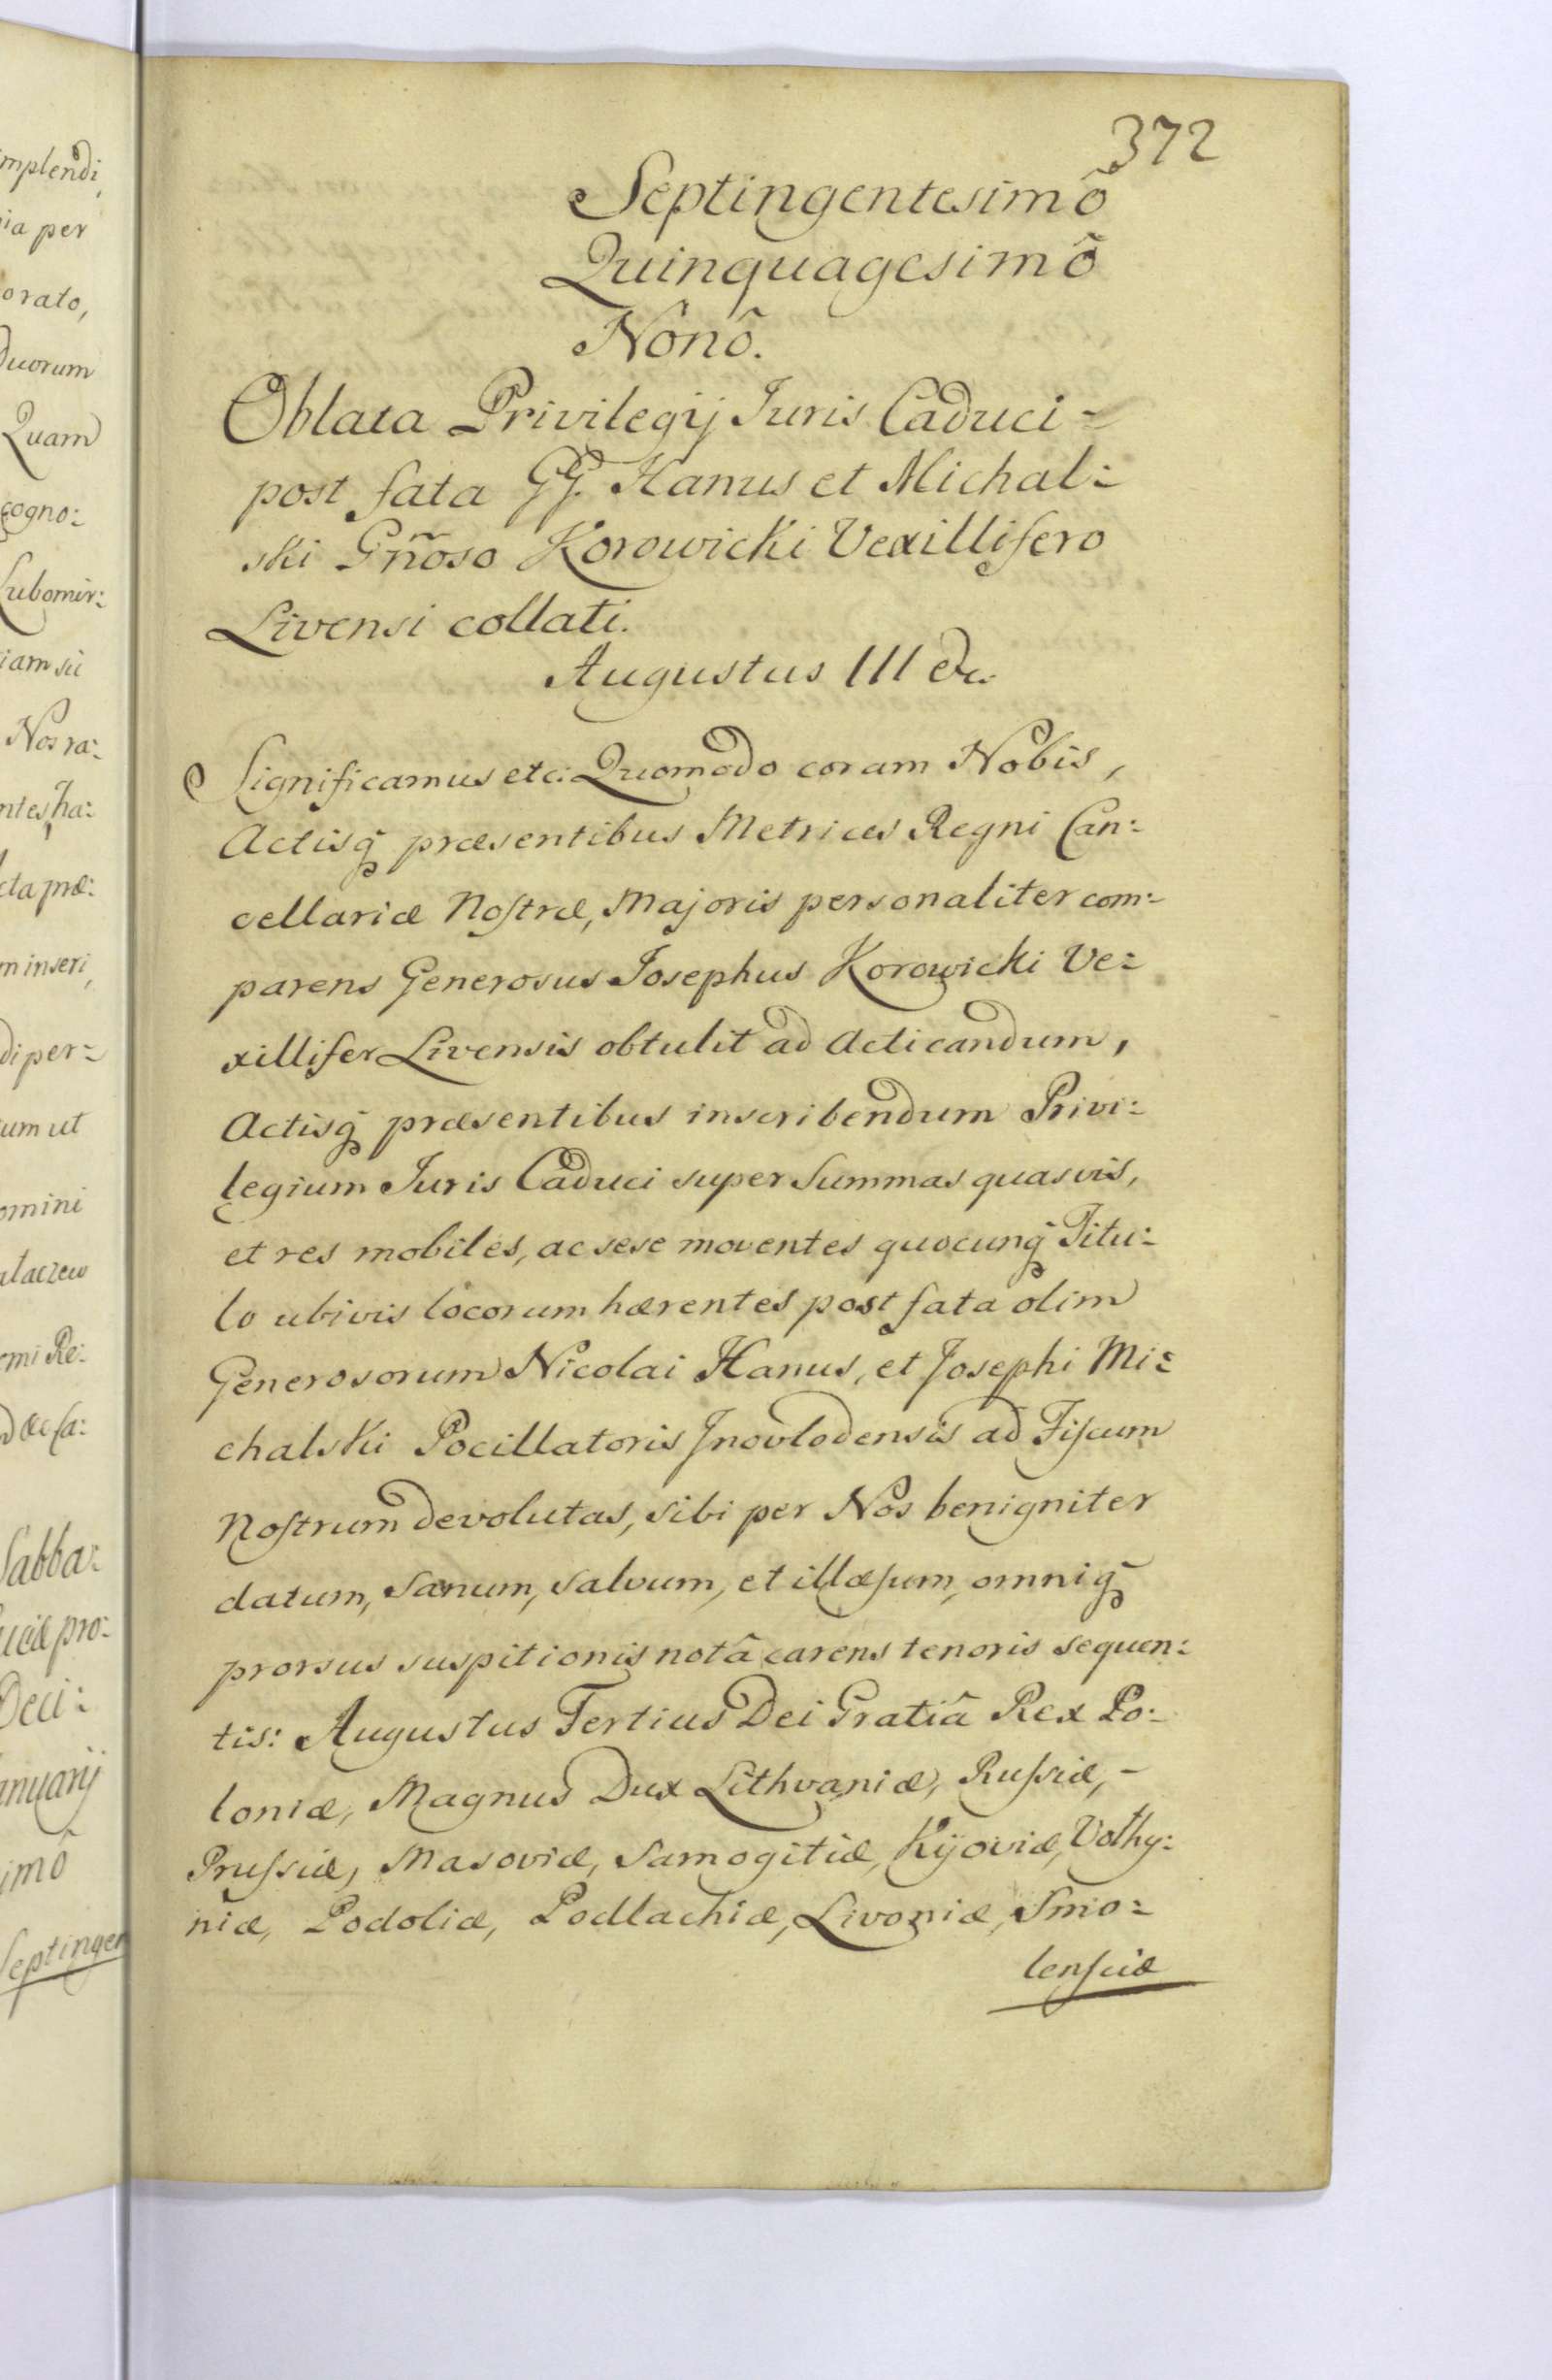 372
Septingentesimô
Quinquagesimô
Nônô.
Oblata Privilegij Iuris Caduci -
post fata GG. Hanus et Michal:
ski Gñoso Korowicki Vexillifero
Livensi collati.
Augustus III etc.
Significamus etc: Quomodo coram Nobis,
Actisq̃ præsentibus Metrices Regni Can:
cellariæ Nostræ, Majoris personaliter com:
parens Generosus Iosephus Korowicki Ve:
xillifer Livensis obtulit ad Acticandum,
Actisq̃ præsentibus inscribendum Privi:
legium Iuris Caduci super Summas quasvis,
et res mobiles, ac sese moventes quocunq̃ Titu:
lo ubivis locorum hærentes post fata olim
Generosorum Nicolai Hanus, et Josephi Mi:
chalski Pocillatoris Jnovlodensis ad Fiscum
Nostrum devolutas, sibi per Nos benigniter
datum, Sanum, salvum, et illæsum, omniq̃
prorsus suspitionis notâ carens tenoris sequen:
tis: Augustus Tertius Dei Gratiâ Rex Po:
loniæ, Magnus Dux Lithvaniæ, Russiæ, -
Prussiæ, Masoviæ, Samogitiæ, Kijoviæ, Volhy:
niæ, Podoliæ, Podlachiæ, Livoniæ, Smo:
lensciæ
mplendi,
ia per
orato,
duorum
Quam
cogno:
Lubomir:
iam sii
Nos ra:
ntes, ha:
cta præ:
m inseri,
di per:
tum ut
omini
alaczew
emi Re:
Sabba:
uciæ pro:
Deci:
anuarij
imô
Septingen